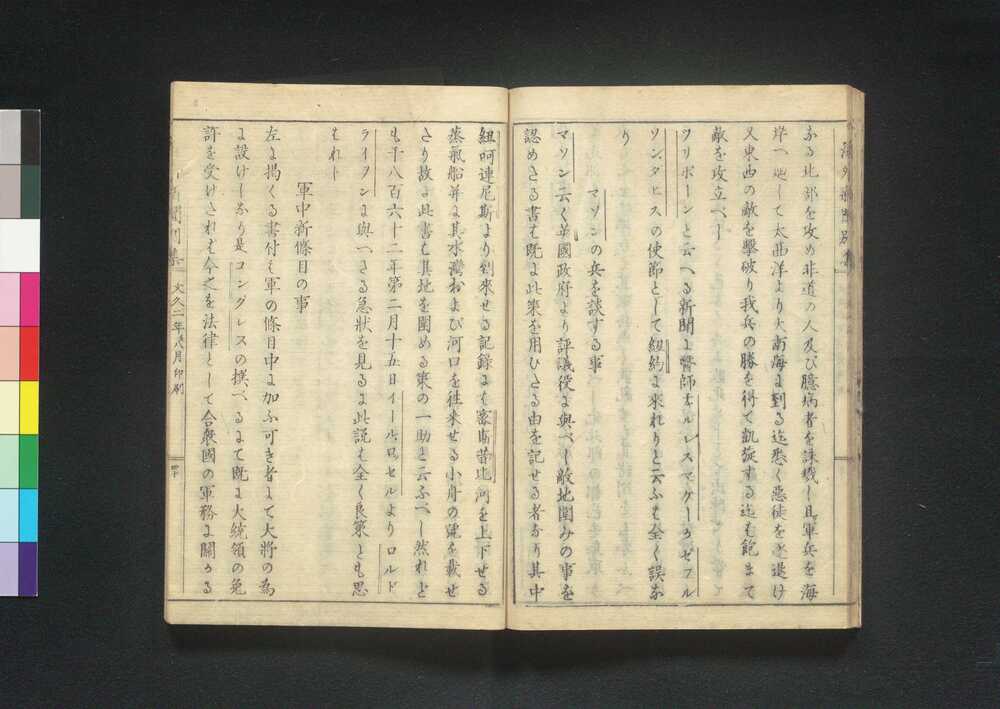 ふる北部を攻め非道の人及び臆病者を誅戮し且軍兵を海
岸へ廻して太西洋より大南海に到る迄悉く悪徒を逐退け
又東西の敵を撃破り我兵の勝を得て凱旋する迄も飽まて
敵を攻立へし
ツリボーンと云へる新聞に醫師
の使節として紐約に來れりと云ふも全く誤な
り
マソンの兵を談する事
マソン云く英國政府より評議役に與へし敵地圍みの事を
認めたる書も既に此策を用ひたる由を記せる者なり其中
紐呵連尼斯より到来せる記録にも密斯昔比河を上下せる
蒸氣舩并に其水灣および河口を往来せる小舟の號を載せ
たり故に此書も其地を圍める策の一助と云ふへし然れど
も千八百六十二年第二月十五日イールロセルよりロルド
ライヲンに與へたる急状を見るに此説も全く良策とも思
われす
軍中新條目の事
左に掲くる書付も軍の條目中に加ふ可き者にて大將の為
に設けしなり是コングレスの撰へるにて既に大統領の免
許を受けされも今之を法律として合衆國の軍務に關かる
文久二年八月印刷
四十